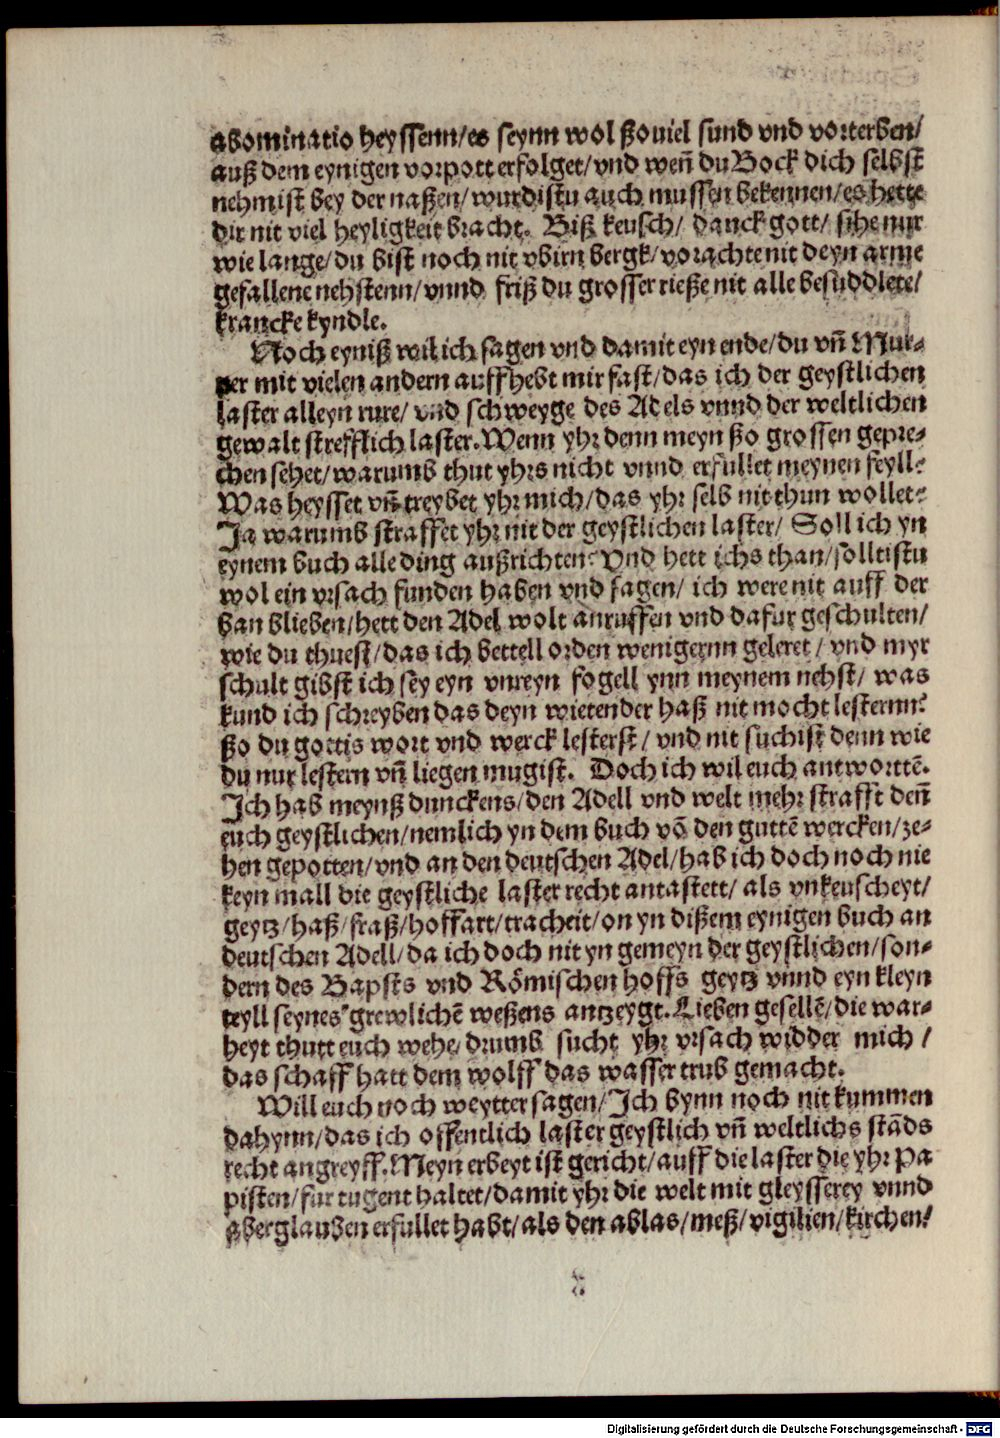 abominatio heyssenn/es seynn wol ßouiel sund vnd vorterben/
auß dem eynigen vorpott erfolget/vnd weñ du Bock dich selbst
nehmist bey der naßen/wurdistu auch mussen bekennen/es hette
dir nit viel heyligkeit bracht. Biß keusch/ danck gott/ sihe nur
wie lange/du bist noch nit vbirn bergk/vorachte nit deyn arme
gefallene nehstenn/vnnd friß du grosser rieße nit alle besuddlete/
krancke kyndle.
Noch eyniß wil ich sagen vnd damit eyn ende/du vñ Mur-
ner mit vielen andern auffhebt mir fast/das ich der geystlichen
laster alleyn rure/ vnd schweyge des Adels vnnd der weltlichen
gewalt strefflich laster. Wenn yhr denn meyn ßo grossen gepre-
chen sehet/warumb thut yhrs nicht vnnd erfullet meynen feyll?
Was heysset vñ treybet yhr mich/das yhr selb nit thun wollet?
Ja warumb straffet yhr nit der geystlichen laster/ Soll ich yn
eynem buch alle ding außrichten? Vnd hett ichs than/solltistu
wol ein vrsach funden haben vnd sagen/ ich were nit auff der
ban blieben/hett den Adel wolt anruffen vnd dafur geschulten/
wie du thuest/das ich bettell orden wenigernn geleret/ vnd myr
schult gibst ich sey eyn vnreyn fogell ynn meynem nehst/ was
kund ich schreyben das deyn wietender haß nit mocht lesternn?
ßo du gottis wort vnd werck lesterst/ vnd nit suchist denn wie
du nur lestern vñ liegen mugist. Doch ich wil euch antworttē.
Ich hab meynß dunckens/den Adell vnd welt mehr strafft deñ
euch geystlichen/nemlich yn dem buch vō den guttē wercken/ze-
hen gepotten/vnd an den deutschen Adel/hab ich doch noch nie
keyn mall die geystliche laster recht antastett/ als vnkeuscheyt/
geytz/haß/fraß/hoffart/tracheit/on yn dißem eynigen buch an
deutschen Adell/da ich doch nit yn gemeyn der geystlichen/son-
dern des Bapsts vnd Römischen hoffs geytz vnnd eyn kleyn
teyll seynes grewlichē weßens antzeygt. Lieben gesellē/die war-
heyt thutt euch wehe/drumb sucht yhr vrsach widder mich/
das schaff hatt dem wolff das wasser trub gemacht.
Will euch noch weytter sagen/Ich bynn noch nit kummen
dahynn/das ich offentlich laster geystlich vñ weltlichs stāds
recht angreyff. Meyn erbeyt ist gericht/auff die laster die yhr Pa
pisten/fur tugent haltet/damit yhr die welt mit gleysserey vnnd
aberglauben erfullet habt/als den ablas/meß/vigilien/kirchen/
Digitalisierung gefördert durch die Deutsche Forschungsgemeinschaft - DFG